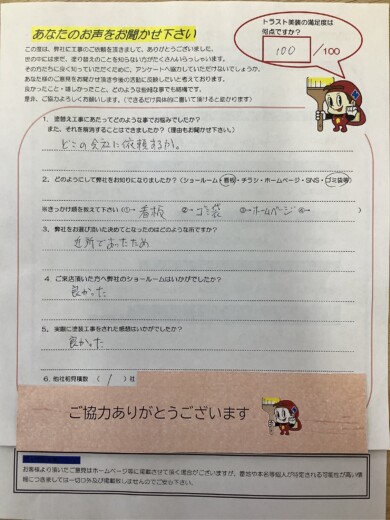 あなたのお声をお聞かせ下さい
トラスト美装の満足度は
何点ですか？
100 /100
この度は、弊社に工事のご依頼を頂きまして、ありがとうございました。
世の中にはまだ、塗り替えのことを知らない方がたくさんいらっしゃいます。
その方たちに良く知っていただくために、アンケートへ協力していただけないでしょうか。
あなた様のご意見をお聞かせ頂き今後の活動に反映したいと考えております。
良かったこと・嬉しかったこと、どのような些細な事でも結構です。
是非、ご協力よろしくお願いします。（できるだけ具体的に書いて頂けると助かります）
1. 塗替え工事にあたってどのような事でお悩みでしたか？
また、それを解消することはできましたか？（理由もお聞かせ下さい。）
どこの会社に依頼するか。
2. どのようにして弊社をお知りになりましたか？（ショールーム・看板・チラシ・ホームページ・SNS・ゴミ袋等）
※きっかけ順を教えて下さい（①→ 看板 ②→ ゴミ袋 ③→ホームページ ④→ ）
3. 弊社をお選び頂いた決めてとなったのはどのような所ですか？
近所であったため
4. ご来店頂いた方へ弊社のショールームはいかがでしたか？
良かった
5. 実際に塗装工事をされた感想はいかがでしたか？
良かった
6. 他社相見積数（ 1 ）社
ご協力ありがとうございます
お客様より頂いたご意見はホームページ等に掲載させて頂く場合がございますが、番地や本名等個人が特定される可能性が高い情
報につきましては一切口外及び掲載致しませんのでご安心下さい。